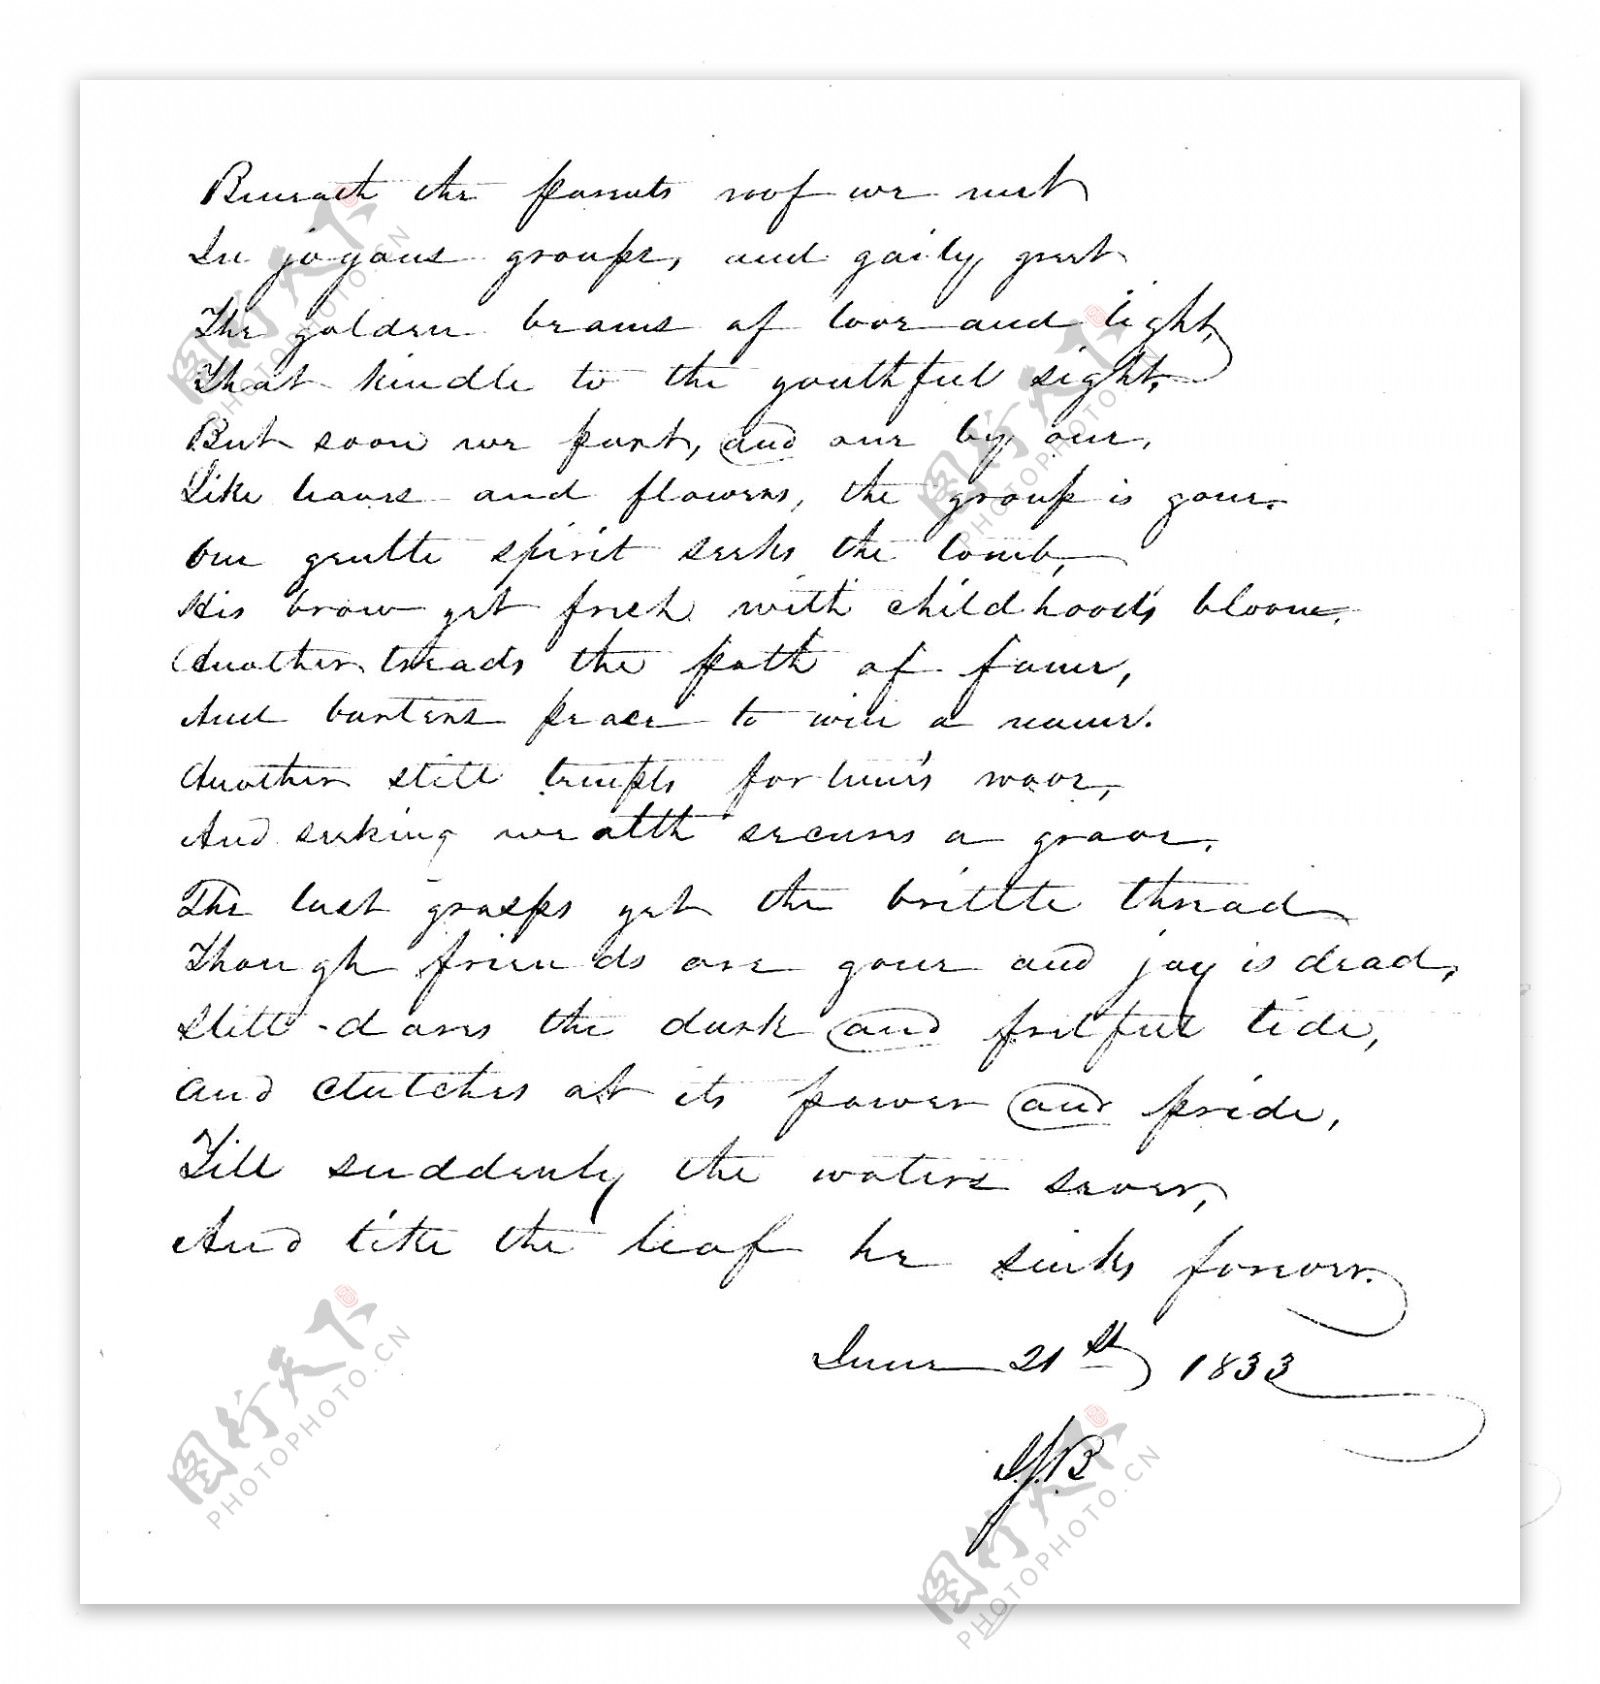 Beneath the parents roof we meet
In joyous groups, and gaily greet
The golden beams of love and light,
That kindle to the youthful sight,
But soon we part, and one by one,
Like leaves and flowers, the group is gone.
One gentle spirit seeks the tomb,
His brow yet fresh with childhood's bloom.
Another treads the path of fame,
And barters peace to win a name.
Another still tempts fortune's wave,
And seeking wealth secures a grave,
The last grasps yet the brittle thread
Though friends are gone and joy is dead,
Still dares the dark and fretful tide,
and clutches at its power and pride,
Till suddenly the waters sever,
And like the leaf he sinks forever.
June 21st 1833
J.B
图行天下
PHOTOPHOTO.CN
图行天下
PHOTOPHOTO.CN
图行天下
PHOTOPHOTO.CN
图行天下
PHOTOPHOTO.CN